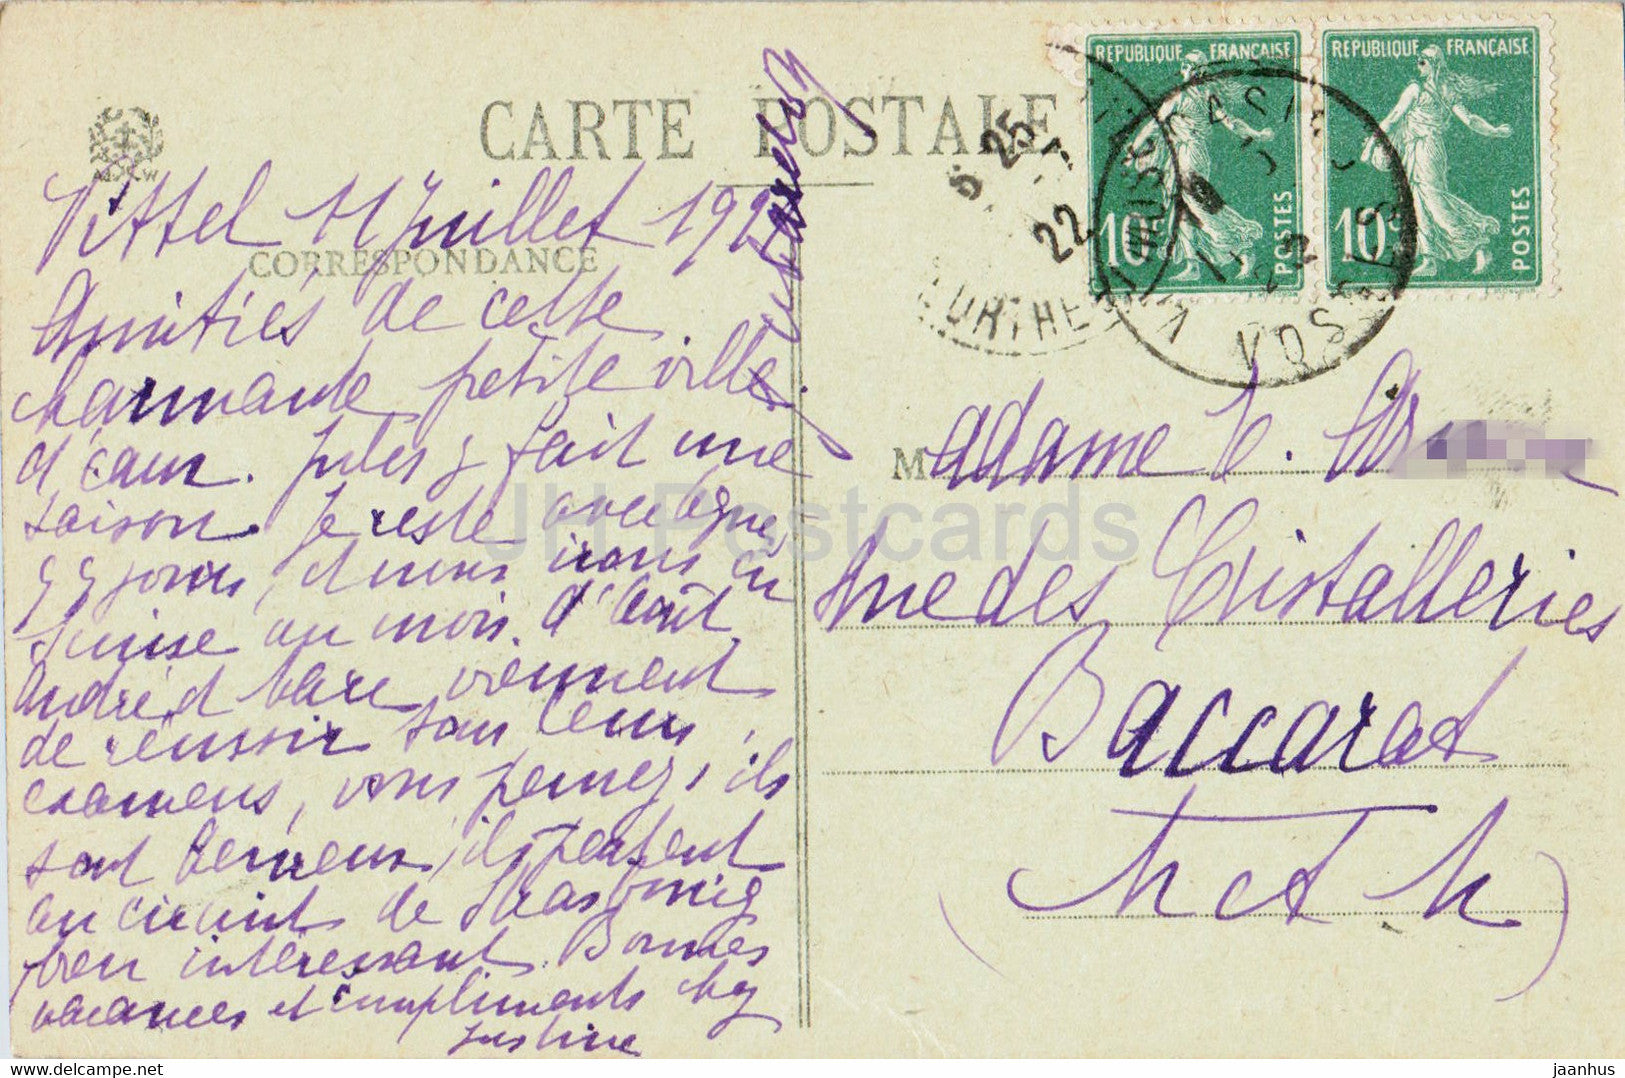 CARTE POSTALE
CORRESPONDANCE
Vittel 11 Juillet 192
Amitiés de cette
charmante petite ville
d'eaux. Jules y fait une
saison. Je reste avec
jours, et nous irons en
Suisse au mois d'Août.
André et viennent
de réussir dans leurs
examens, vous pensez, ils
sont heureux, ils partent
au circuit de Strasbourg
bien intéressant. Bonnes
vacances et compliments chez
Justine
REPUBLIQUE FRANÇAISE
10c POSTES
REPUBLIQUE FRANÇAISE
10c POSTES
25
22
VOSGES
Madame
rue des Cristalleries
Baccarat
(M et M)
JH Postcards
www.delcampe.net
jaanhus